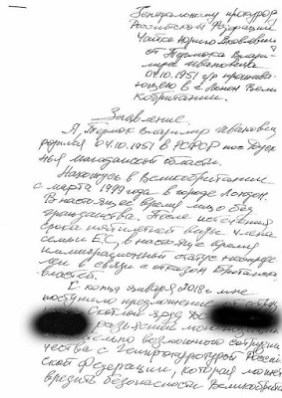 Генеральному прокурору
Российской Федерации
Чайке Юрию Яковлевичу
от Терлюка Влади-
мира Ивановича
04.10.1951 г/р прожива-
ющего в г. Лондон Вели
кобритании.
Заявление.
Я, Терлюк Владимир Иванович,
родился 04.10.1951 в РСФСР
Магаданской области.
Нахожусь в Великобритании
с марта 1999 года в городе Лондон.
В настоящее время лицо без
гражданства. После истечения
срока пятилетней визы члена
семьи ЕС, в настоящее время
иммиграционный статус
в связи с отказом Британских
властей.
С конца января 2018 г. мне
поступило предложение от
Скотлан Ярд
разъяснил мою
возможного сотрудни
чества с Генпрокуратурой Россий
ской Федерации, которая может
вредить безопасности Великобрита